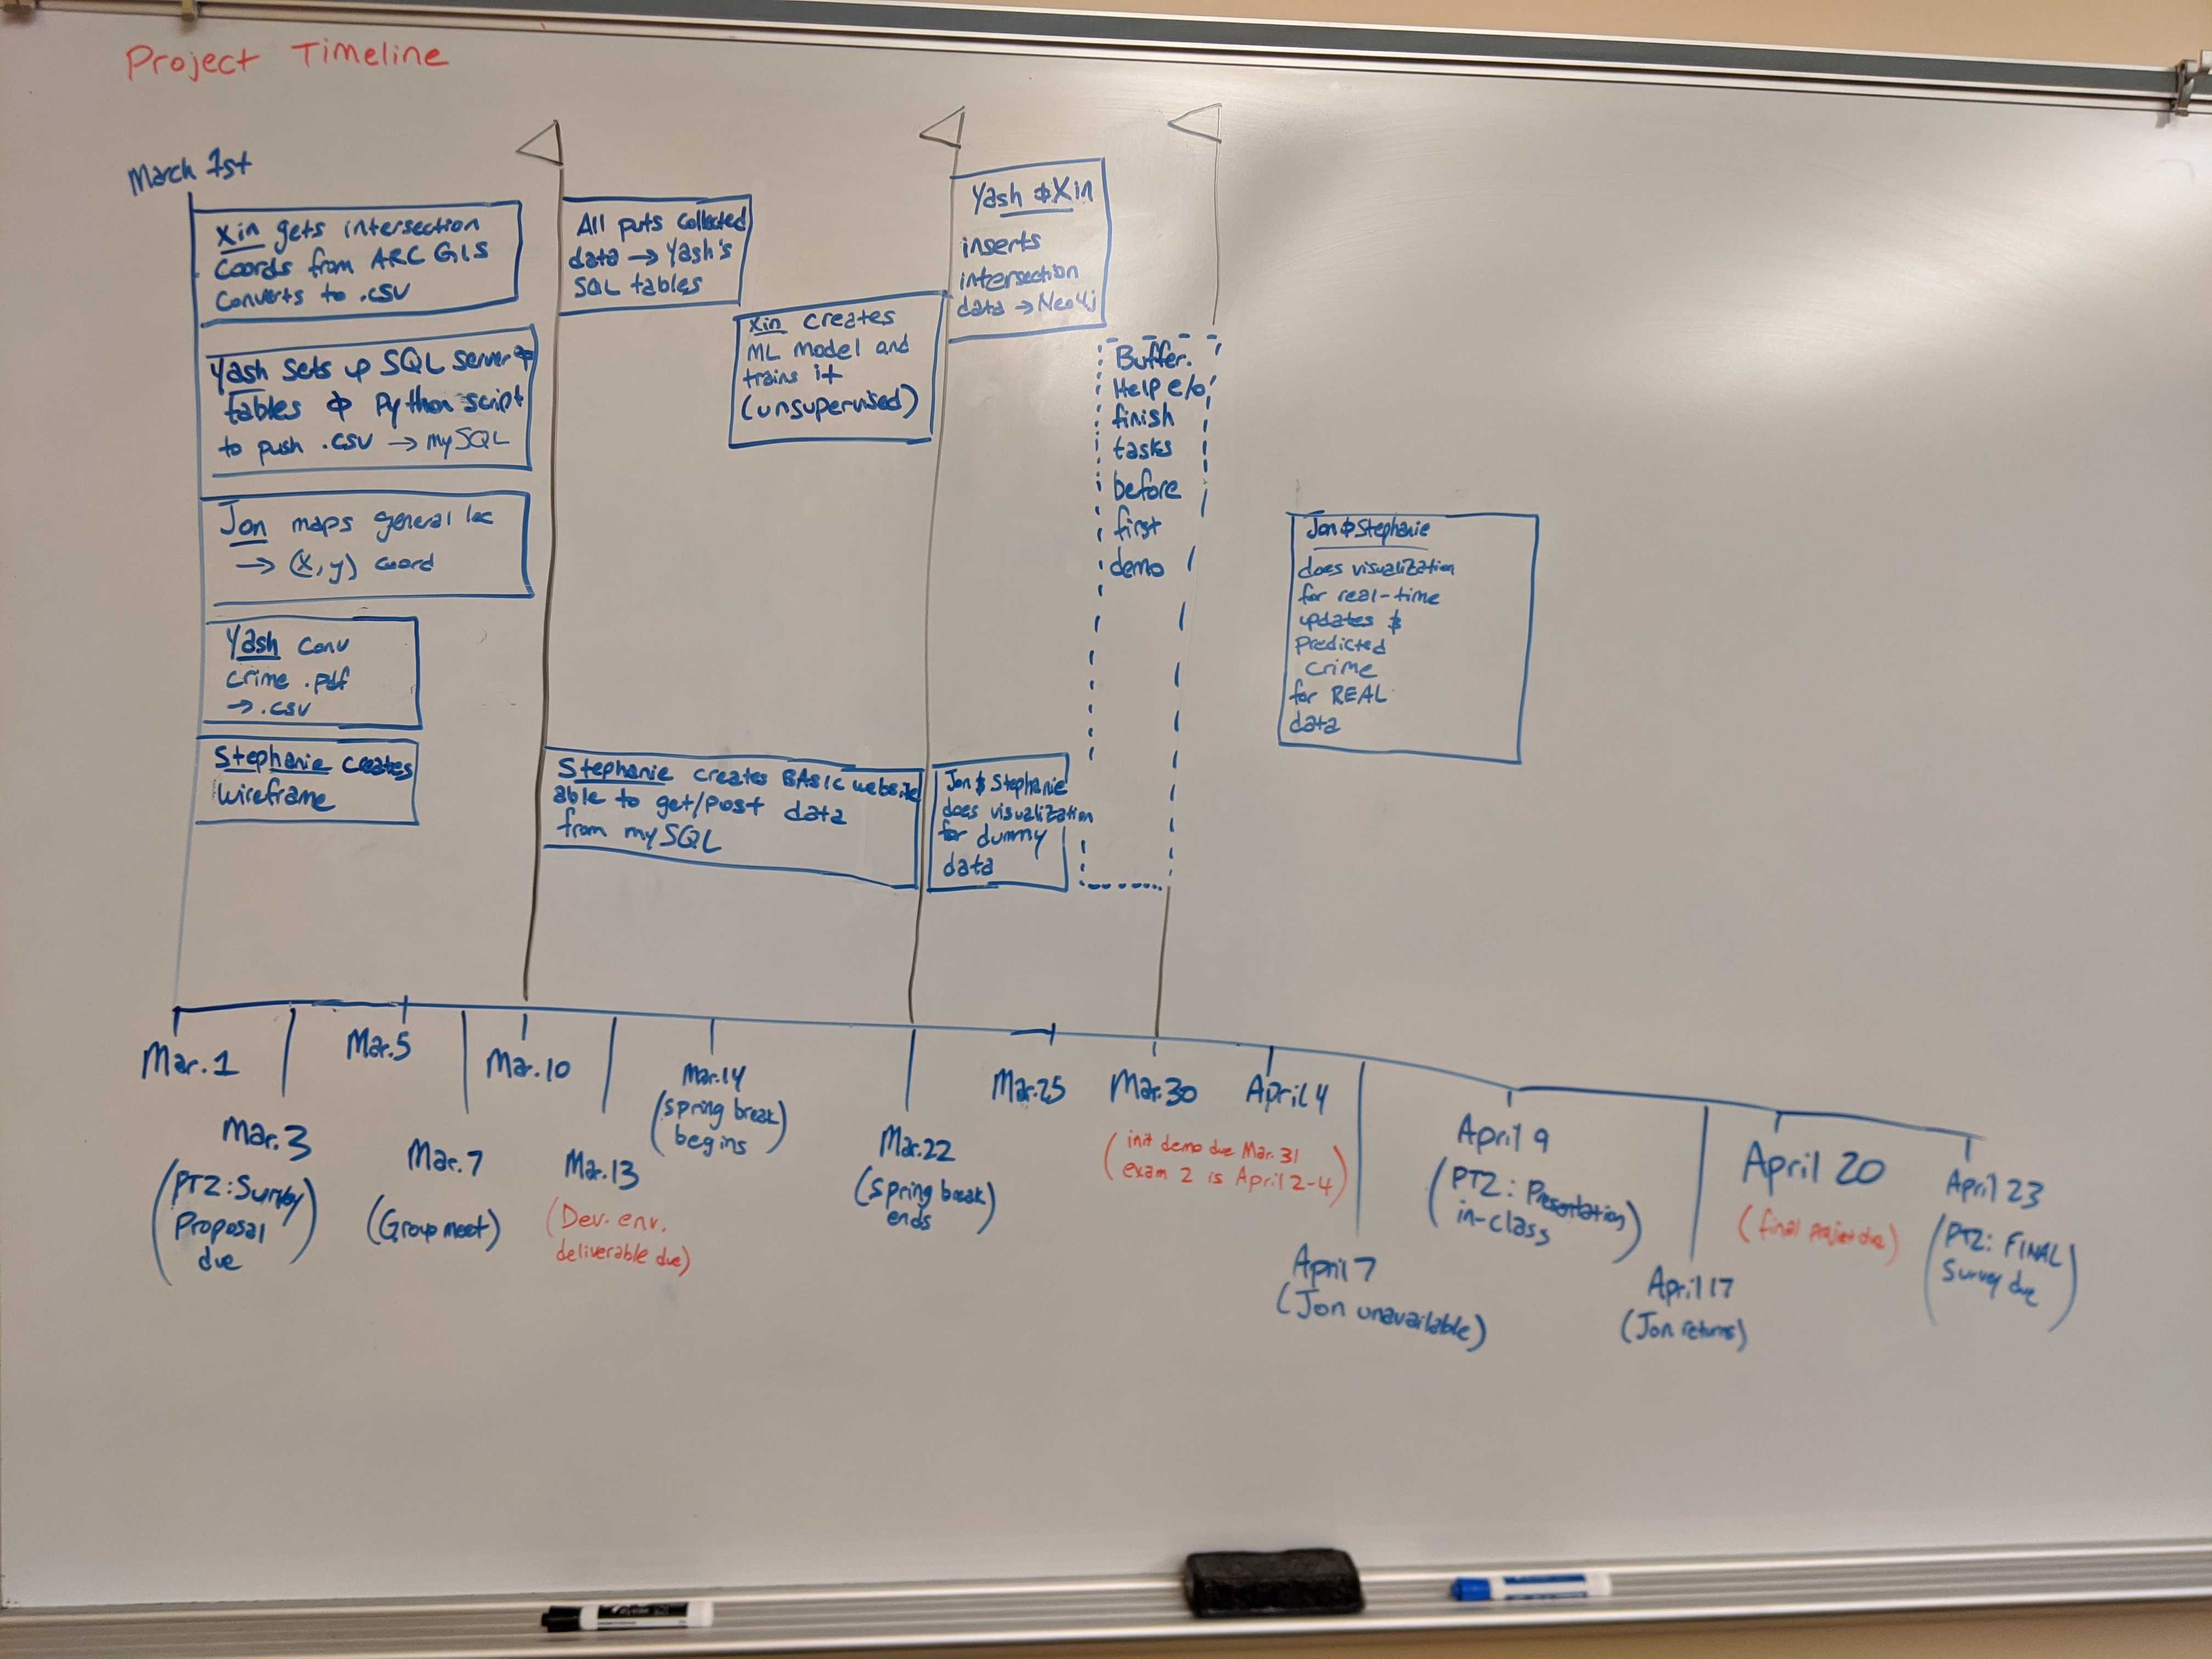 Project Timeline
March 1st
Xin gets intersection
coords from ARC GIS
converts to .csv
Yash sets up SQL server &
tables & Python script
to push .csv → mySQL
Jon maps general loc
→ (x,y) coord
Yash conv
crime .pdf
→ .csv
Stephanie creates
wireframe
All puts collected
data → Yash's
SQL tables
Xin creates
ML model and
trains it
(unsupervised)
Stephanie creates BASIC website
able to get/post data
from mySQL
Yash & Xin
inserts
intersection
data → Neo4j
Jon & Stephanie
does visualization
for dummy
data
Buffer.
Help e/o
finish
tasks
before
first
demo
Jon & Stephanie
does visualization
for real-time
updates &
predicted
crime
for REAL
data
Mar. 1
Mar. 3
(PT2: Survey
Proposal
due)
Mar. 5
Mar. 7
(Group meet)
Mar. 10
Mar. 13
(Dev. env.
deliverable due)
Mar. 14
(spring break
begins)
Mar. 22
(spring break
ends)
Mar. 25
Mar. 30
(init demo due Mar. 31
exam 2 is April 2-4)
April 4
April 7
(Jon unavailable)
April 9
(PT2: Presentation
in-class)
April 17
(Jon returns)
April 20
(final project due)
April 23
(PT2: FINAL
Survey due)